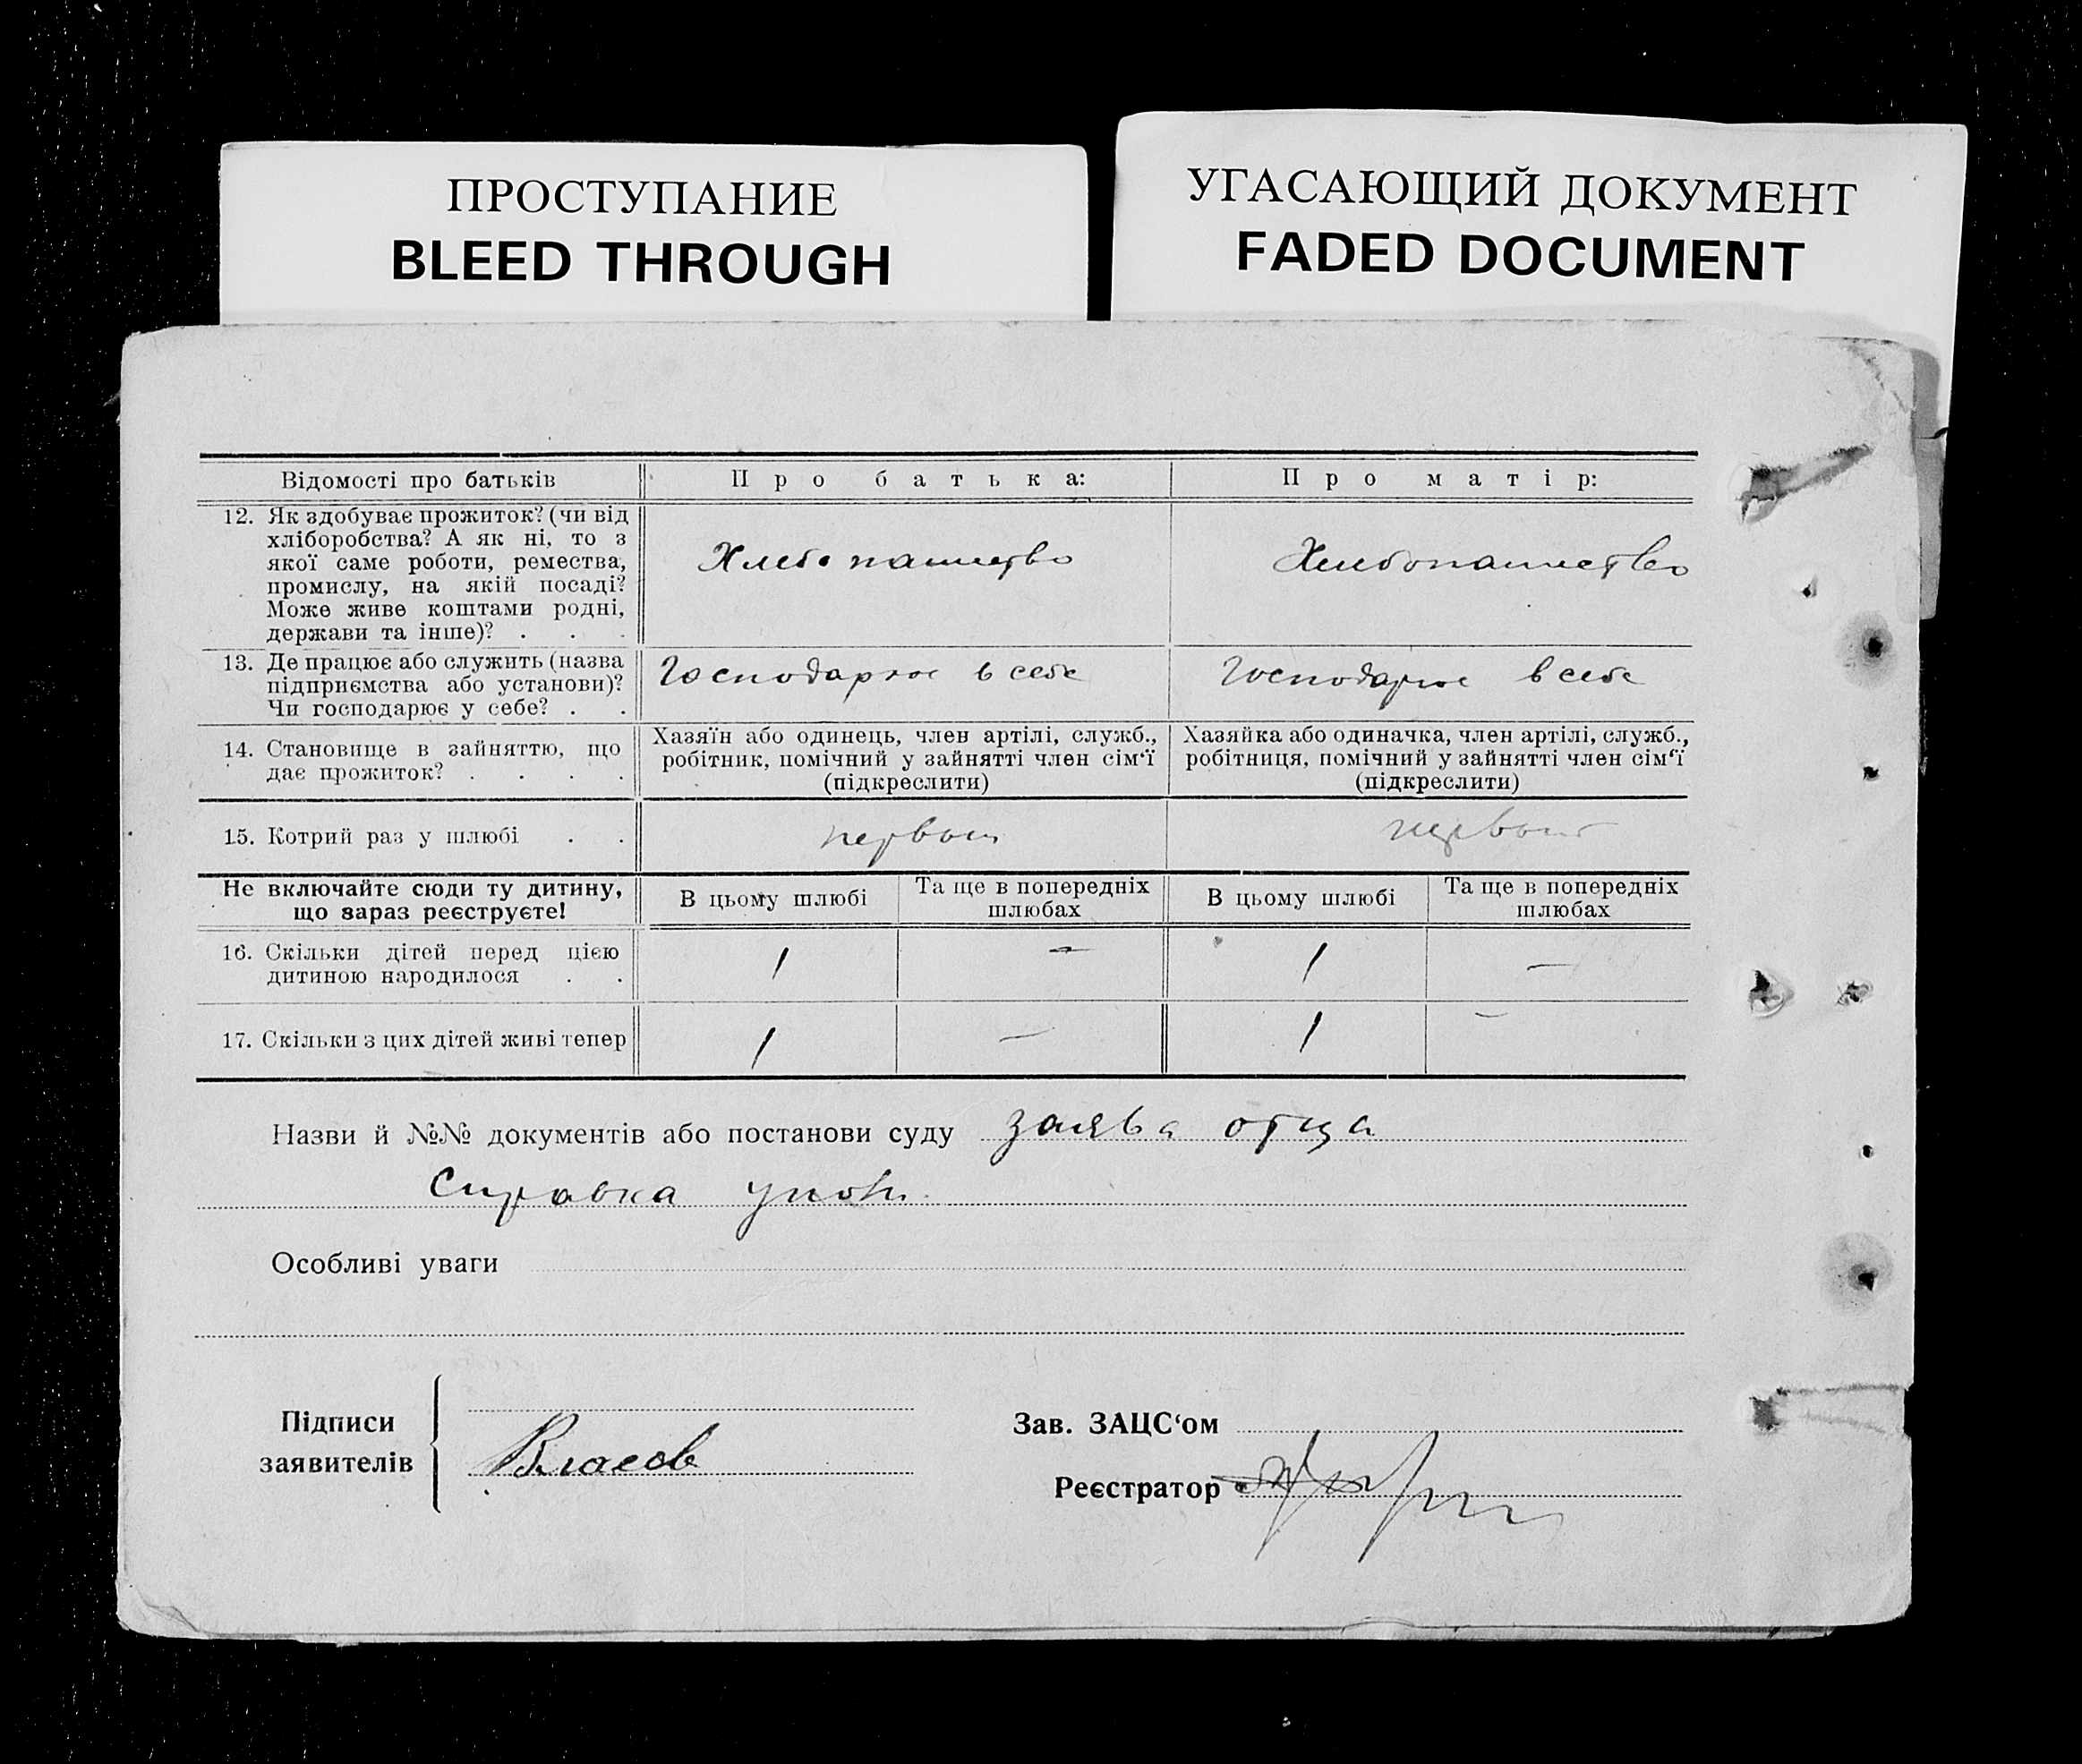 ПРОСТУПАНИЕ
BLEED THROUGH
УГАСАЮЩИЙ ДОКУМЕНТ
FADED DOCUMENT
Відомості про батьків
Про батька:
Про матір:
12. Як здобуває прожиток? (чи від
хліборобства? А як ні, то з
якої саме роботи, ремества,
промислу, на якій посаді?
Може живе коштами родні,
держави та інше)? . . .
Хлебопашество
Хлебопашество
13. Де працює або служить (назва
підприємства або установи)?
Чи господарює у себе? . .
Господарює в себе
Господарює в себе
14. Становище в зайняттю, що
дає прожиток? . . . .
Хазяїн або одинець, член артілі, служб.,
робітник, помічний у зайнятті член сім‘ї
(підкреслити)
Хазяйка або одиначка, член артілі, служб.,
робітниця, помічний у зайнятті член сім‘ї
(підкреслити)
15. Котрий раз у шлюбі . .
первый
первый
Не включайте сюди ту дитину,
що зараз реєструєте!
В цьому шлюбі
Та ще в попередніх
шлюбах
В цьому шлюбі
Та ще в попередніх
шлюбах
16. Скільки дітей перед цією
дитиною народилося . .
1 — 1 —
17. Скільки з цих дітей живі тепер
1 — 1 —
Назви й №№ документів або постанови суду заява отца
Справка
Особливі уваги
Підписи
заявителів
Власов
Зав. ЗАЦС‘ом
Реєстратор